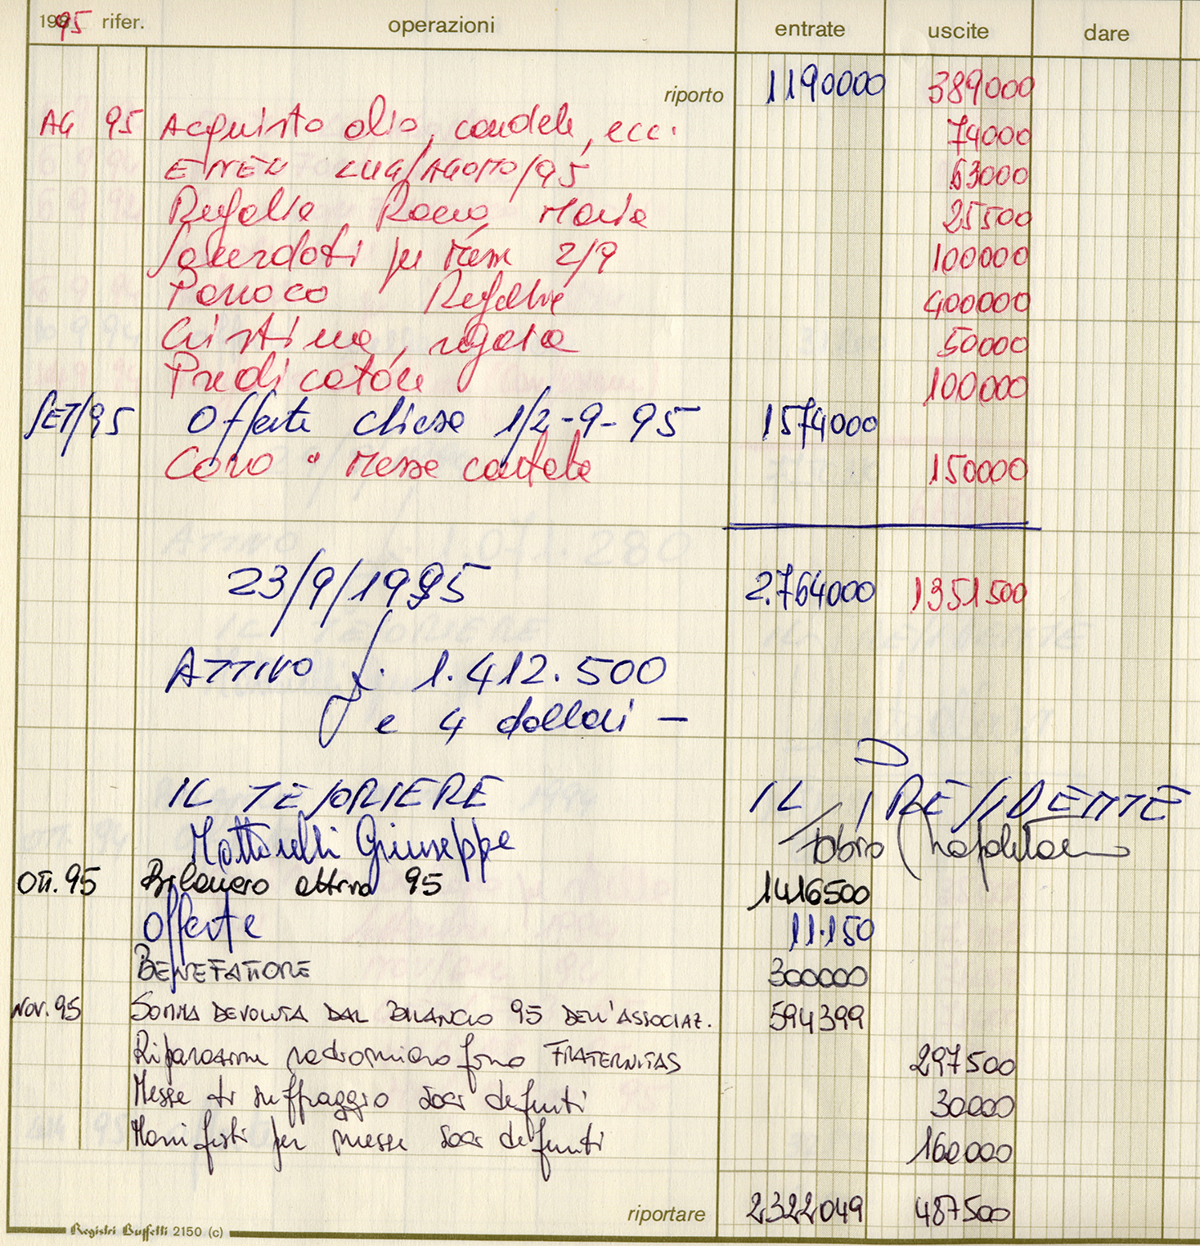 1995 rifer. operazioni entrate uscite dare
riporto 1190000 389000
AG 95 Acquisto olio, candele, ecc. 74000
ENEL LUG/AGOSTO/95 63000
Regalie Rocco, Maria 25500
Sacerdoti per Messe 2/9 100000
Parroco Regalie 400000
Cristina, regalia 50000
Predicatore 100000
SET/95 Offerte chiesa 1/2-9-95 1574000
Coro Messe cantate 150000
23/9/1995 2.764000 1351500
ATTIVO £. 1.412.500
e 4 dollari —
IL TESORIERE IL PRESIDENTE
Giuseppe Fabio Napolitano
OTT. 95 Bilancio attivo 95 1416500
Offerte 11.150
BENEFATTORE 300000
NOV. 95 SOMMA DEVOLUTA DAL BILANCIO 95 DELL'ASSOCIAZ. 594399
Riparazione radiomicrofono FRATERNITAS 297500
Messe di suffraggio soci defunti 30000
Manifesti per messe soci defunti 160000
riportare 2322049 487500
Registri Buffetti 2150 (c)